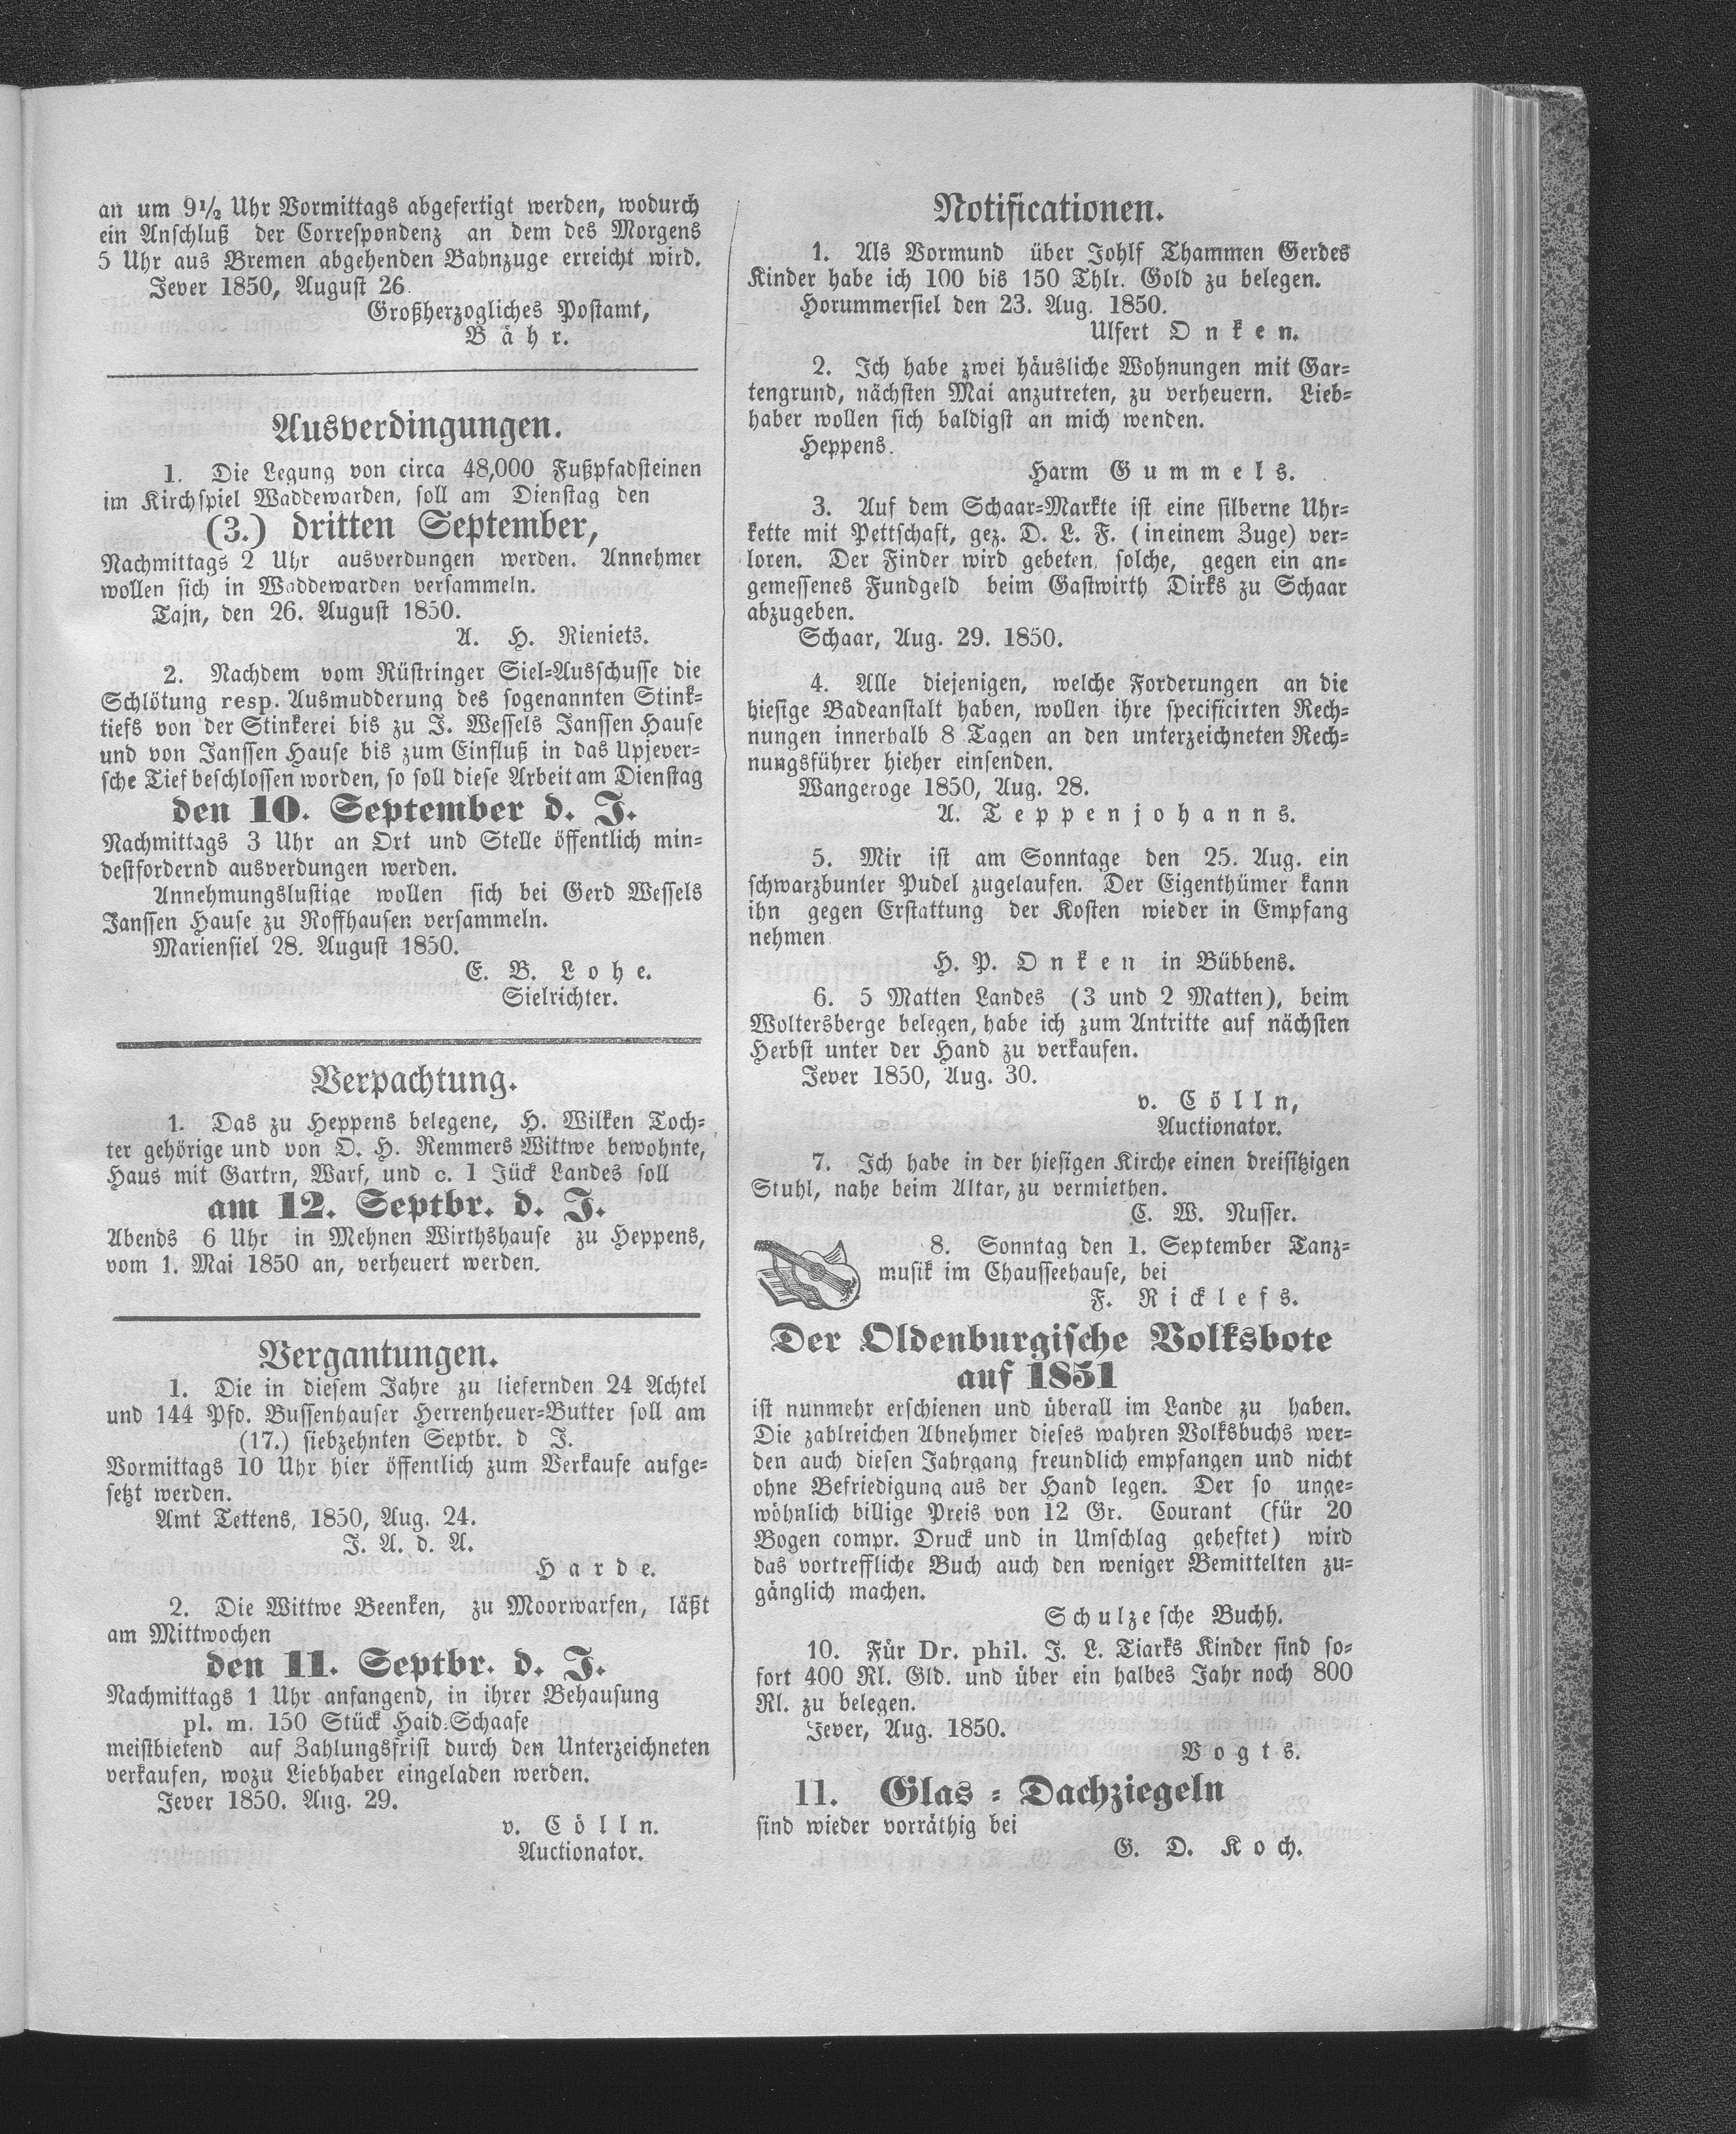 an um 9½ Uhr Vormittags abgefertigt werden, wodurch
ein Anschluß der Correspondenz an dem des Morgens
5 Uhr aus Bremen abgehenden Bahnzuge erreicht wird.
Jever 1850, August 26.
Großherzogliches Postamt,
Bähr.
Ausverdingungen.
1. Die Legung von circa 48,000 Fußpfadsteinen
im Kirchspiel Waddewarden, soll am Dienstag den
(3.) dritten September,
Nachmittags 2 Uhr ausverdungen werden. Annehmer
wollen sich in Waddewarden versammeln.
Tajn, den 26. August 1850.
A. H. Rieniets.
2. Nachdem vom Rüstringer Siel-Ausschusse die
Schlötung resp. Ausmudderung des sogenannten Stink-
tiefs von der Stinkerei bis zu J. Wessels Janssen Hause
und von Janssen Hause bis zum Einfluß in das Upjever-
sche Tief beschlossen worden, so soll diese Arbeit am Dienstag
den 10. September d. J.
Nachmittags 3 Uhr an Ort und Stelle öffentlich min-
destfordernd ausverdungen werden.
Annehmungslustige wollen sich bei Gerd Wessels
Janssen Hause zu Roffhausen versammeln.
Mariensiel 28. August 1850.
E. B. Lohe.
Sielrichter.
Verpachtung.
1. Das zu Heppens belegene, H. Wilken Toch-
ter gehörige und von O. H. Remmers Wittwe bewohnte,
Haus mit Gartrn, Warf, und c. 1 Jück Landes soll
am 12. Septbr. d. J.
Abends 6 Uhr in Mehnen Wirthshause zu Heppens,
vom 1. Mai 1850 an, verheuert werden.
Vergantungen.
1. Die in diesem Jahre zu liefernden 24 Achtel
und 144 Pfd. Bussenhauser Herrenheuer-Butter soll am
(17.) siebzehnten Septbr. d J.
Vormittags 10 Uhr hier öffentlich zum Verkaufe aufge-
setzt werden.
Amt Tettens, 1850, Aug. 24.
J. A. d. A.
Harde.
2. Die Wittwe Beenken, zu Moorwarfen, läßt
am Mittwochen
den 11. Septbr. d. J.
Nachmittags 1 Uhr anfangend, in ihrer Behausung
pl. m. 150 Stück Haid-Schaafe
meistbietend auf Zahlungsfrist durch den Unterzeichneten
verkaufen, wozu Liebhaber eingeladen werden.
Jever 1850. Aug. 29.
v. Cölln.
Auctionator.
Notificationen.
1. Als Vormund über Johlf Thammen Gerdes
Kinder habe ich 100 bis 150 Thlr. Gold zu belegen.
Horummersiel den 23. Aug. 1850.
Ulfert Onken.
2. Ich habe zwei häusliche Wohnungen mit Gar-
tengrund, nächsten Mai anzutreten, zu verheuern. Lieb-
haber wollen sich baldigst an mich wenden.
Heppens.
Harm Gummels.
3. Auf dem Schaar-Markte ist eine silberne Uhr-
kette mit Pettschaft, gez. D. L. F. (in einem Zuge) ver-
loren. Der Finder wird gebeten, solche, gegen ein an-
gemessenes Fundgeld beim Gastwirth Dirks zu Schaar
abzugeben.
Schaar, Aug. 29. 1850.
4. Alle diejenigen, welche Forderungen an die
hiesige Badeanstalt haben, wollen ihre specificirten Rech-
nungen innerhalb 8 Tagen an den unterzeichneten Rech-
nungsführer hieher einsenden.
Wangeroge 1850, Aug. 28.
A. Teppenjohanns.
5. Mir ist am Sonntage den 25. Aug. ein
schwarzbunter Pudel zugelaufen. Der Eigenthümer kann
ihn gegen Erstattung der Kosten wieder in Empfang
nehmen
H. P. Onken in Bübbens.
6. 5 Matten Landes (3 und 2 Matten), beim
Woltersberge belegen, habe ich zum Antritte auf nächsten
Herbst unter der Hand zu verkaufen.
Jever 1850, Aug. 30.
v. Cölln,
Auctionator.
7. Ich habe in der hiesigen Kirche einen dreisitzigen
Stuhl, nahe beim Altar, zu vermiethen.
C. W. Nusser.
8. Sonntag den 1. September Tanz-
musik im Chausseehause, bei
F. Ricklefs.
Der Oldenburgische Volksbote
auf 1851
ist nunmehr erschienen und überall im Lande zu haben.
Die zahlreichen Abnehmer dieses wahren Volksbuchs wer-
den auch diesen Jahrgang freundlich empfangen und nicht
ohne Befriedigung aus der Hand legen. Der so unge-
wöhnlich billige Preis von 12 Gr. Courant (für 20
Bogen compr. Druck und in Umschlag geheftet) wird
das vortreffliche Buch auch den weniger Bemittelten zu-
gänglich machen.
Schulzesche Buchh.
10. Für Dr. phil. J. L. Tiarks Kinder sind so-
fort 400 Rl. Gld. und über ein halbes Jahr noch 800
Rl. zu belegen.
Jever, Aug. 1850.
Vogts.
11. Glas-Dachziegeln
sind wieder vorräthig bei
G. D. Koch.